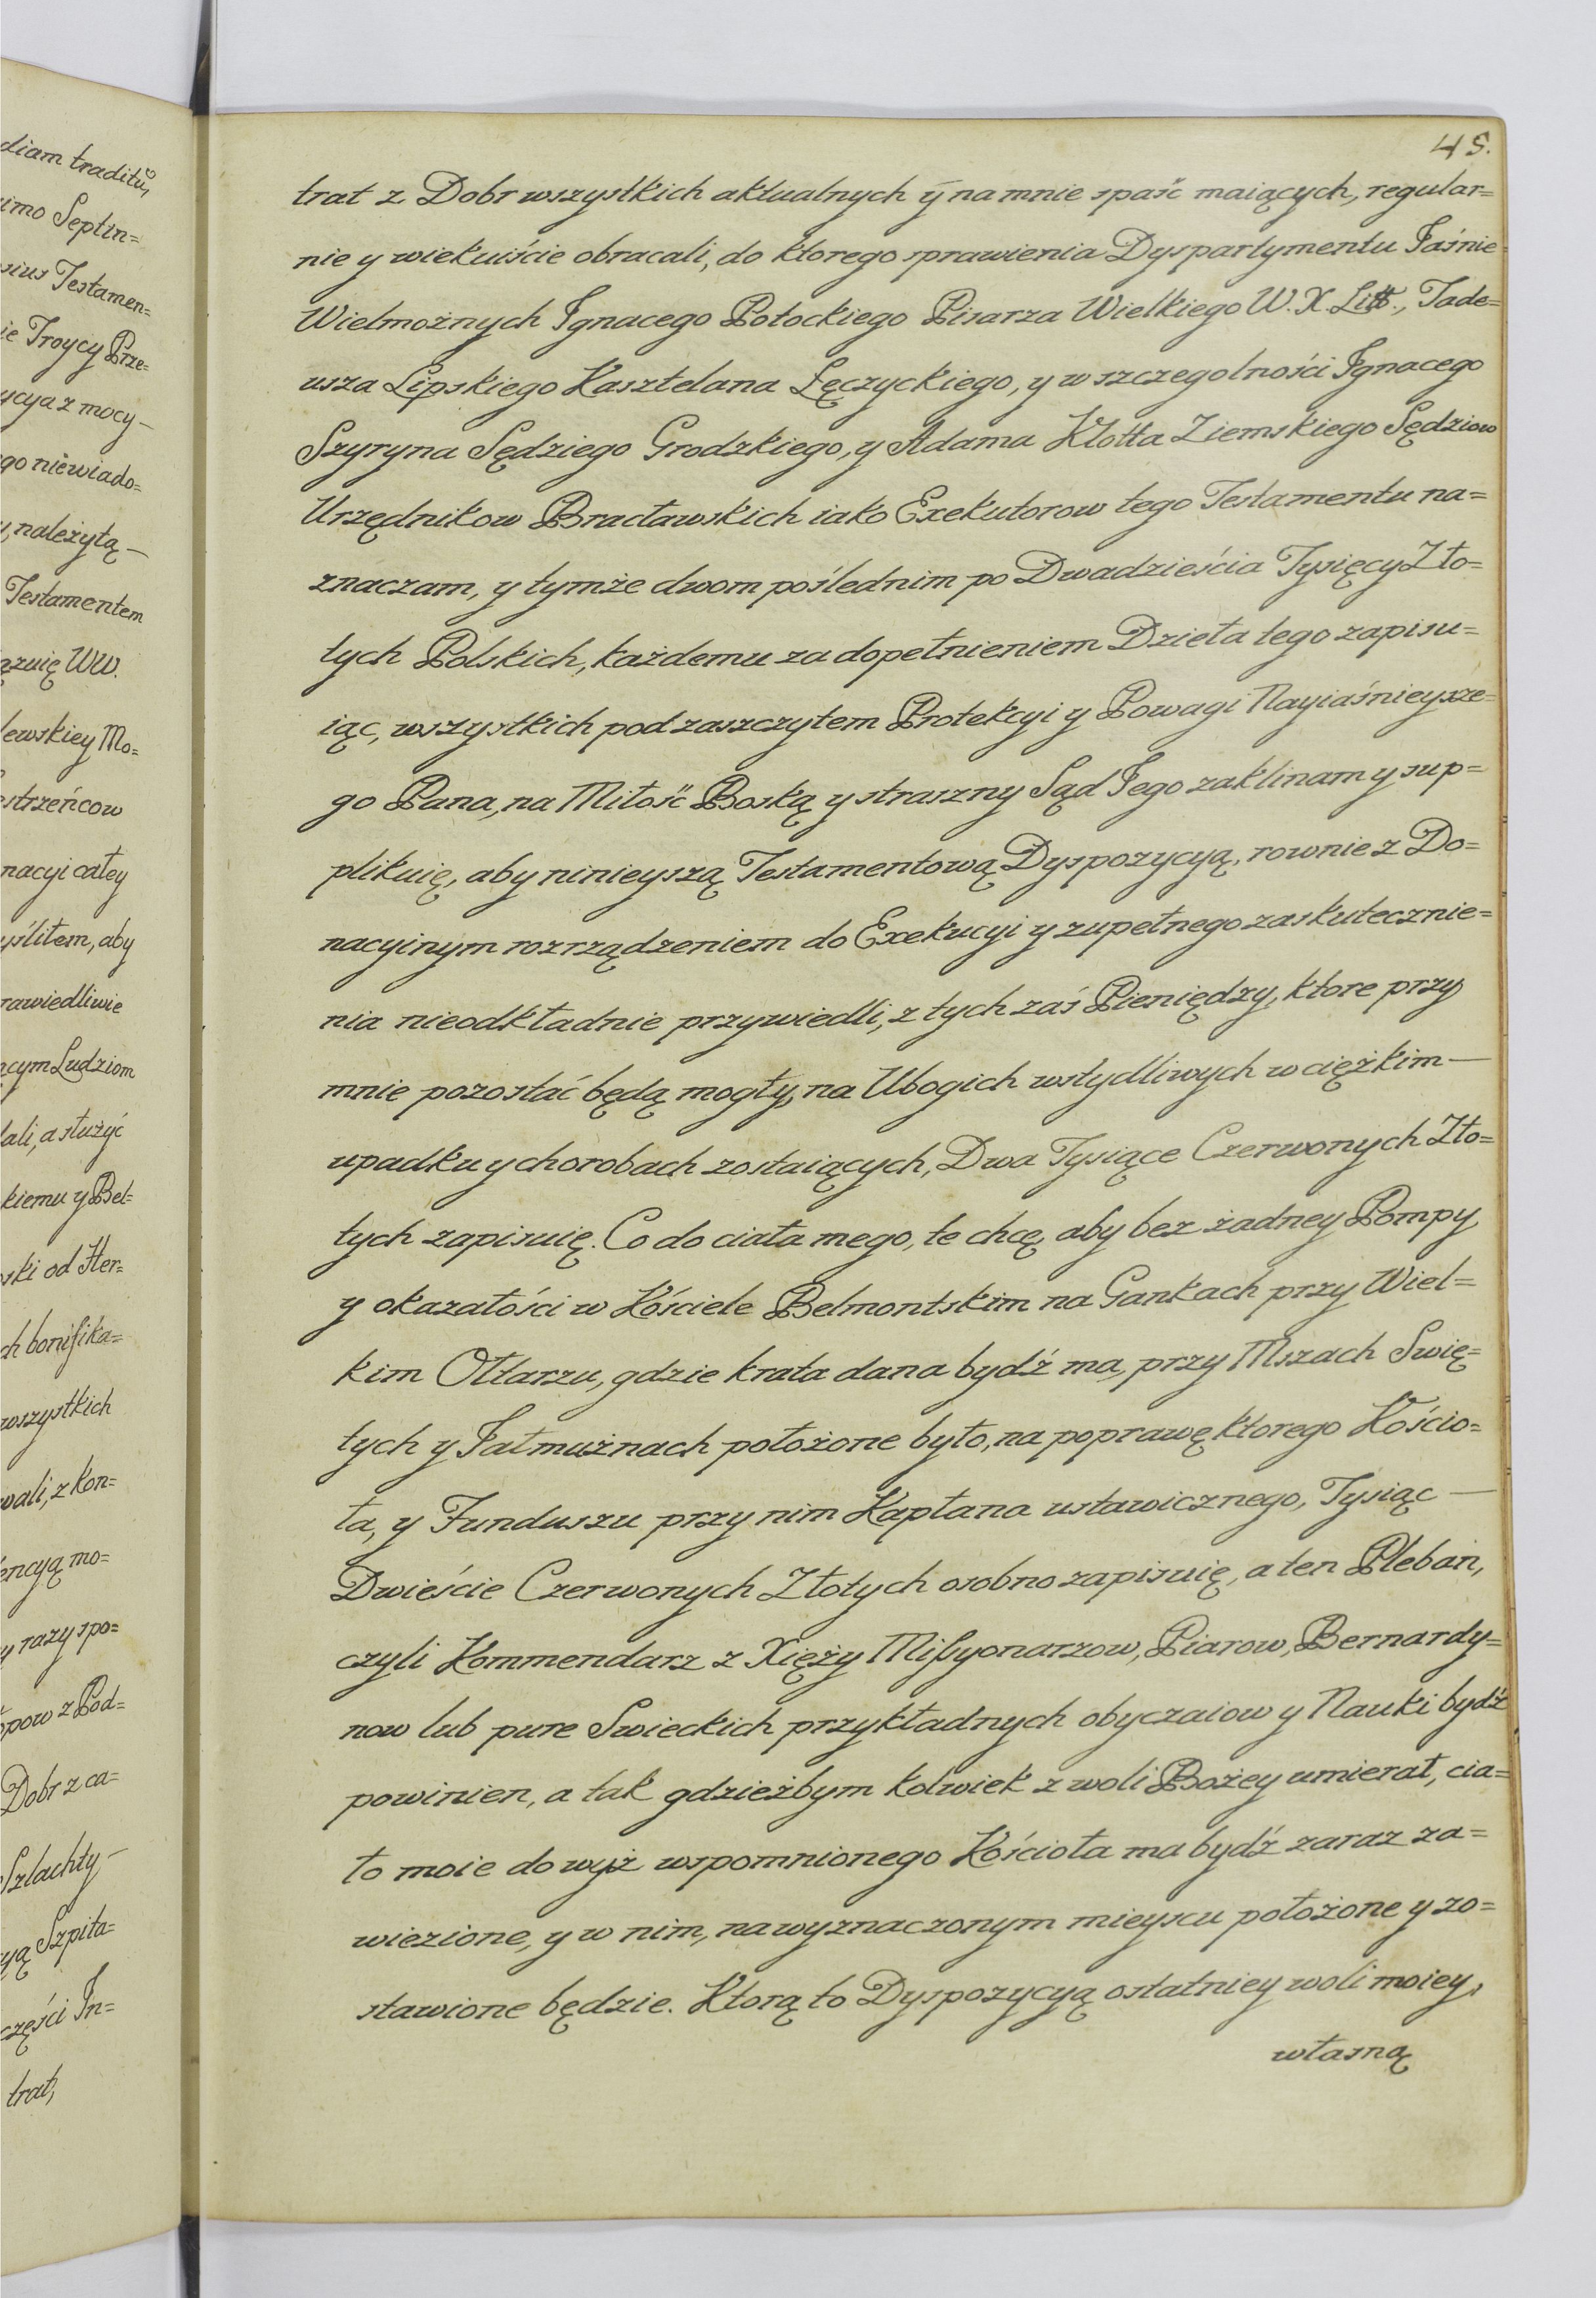 diam traditū,
imo Septin=
sius Testamen=
ie Troycy Prze=
ycya z mocy—
go niewiado=
należytą—
Testamentem
azuię WW.
lewskiey Mo=
estrzeńcow
nacyi całey
yślitem, aby
rawiedliwie
cym Ludziom
ali, a służyć
kiemu y Bel=
ski od Her=
ch bonifika=
wszystkich
wali, z kon=
encyą mo=
y razy spo=
pow z Pod=
Dobr z ca=
Szlachty—
yą Szpita=
części In=
trat,
45.
trat z Dobr wszystkich aktualnych ÿ na mnie spaść maiących, regular=
nie y wiekuiście obracali, do ktorego sprawienia Dyspartymentu Jaśnie=
Wielmożnych Ignacego Potockiego Pisarza Wielkiego W. X. Litt., Tade=
usza Lipskiego Kasztelana Łęczyckiego, y w szczegolności Ignacego
Szyryna Sędziego Grodzkiego, y Adama Kłotta Ziemskiego Sędziow
Urzędnikow Bracławskich iako Exekutorow tego Testamentu na=
znaczam, y tymże dwom poślednim po Dwadzieścia Tysięcy Zło=
tych Polskich, każdemu za dopełnieniem Dzieła tego zapisu=
iąc, wszystkich pod zaszczytem Protekcyi y Powagi Nayiaśnieysze=
go Pana, na Miłość Boską y straszny Sąd Jego zaklinam y sup=
plikuię, aby ninieyszą Testamentową Dyspozycyą, rownie z Do=
nacyinym rozrządzeniem do Exekucyi y zupełnego zaskutecznie=
nia nieodkładnie przywiedli, z tych zaś Pieniędzy, ktore przy
mnie pozostać będą mogły, na Ubogich wstydliwych w ciężkim—
upadku y chorobach zostaiących, Dwa Tysiące Czerwonych Zło=
tych zapisuię. Co do ciała mego, te chcę, aby bez żadney Pompy
y okazałości w Kościele Belmontskim na Gankach przy Wiel=
kim Ołtarzu, gdzie krata dana bydź ma, przy Mszach Swię=
tych y Jałmużnach położone było, na poprawę ktorego Kościo=
ła, y Funduszu przy nim Kapłana ustawicznego, Tysiąc—
Dwieście Czerwonych Złotych osobno zapisuię, a ten Pleban,
czyli Kommendarz z Xięży Missyonarzow, Piarow, Bernardy=
now lub pure Swieckich przykładnych obyczaiow y Nauki bydź
powinien, a tak gdzieżbym kolwiek z woli Bożey umierał, cia=
ło moie do wyż wspomnionego Kościoła ma bydź zaraz za=
wiezione, y w nim, na wyznaczonym mieyscu położone y zo=
stawione będzie. Ktorą to Dyspozycyą ostatniey woli moiey,
własną